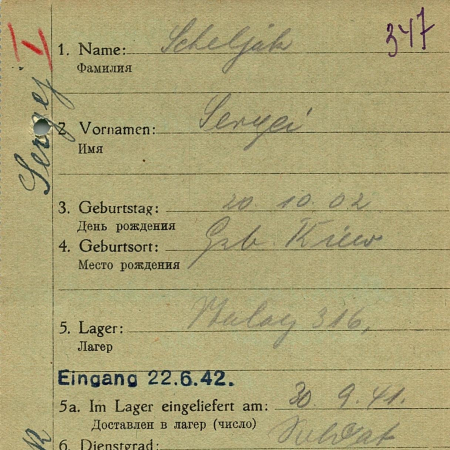 347
1. Name: Scheljuk
Фамилия
Sergej
2. Vornamen: Sergei
Имя
3. Geburtstag: 20. 10. 02
День рождения
4. Geburtsort: Geb. Kiew
Место рождения
5. Lager: Stalag 316,
Лагер
Eingang 22.6.42.
5a. Im Lager eingeliefert am: 30. 9. 41.
Доставлен в лагер (число)
6. Dienstgrad: Soldat